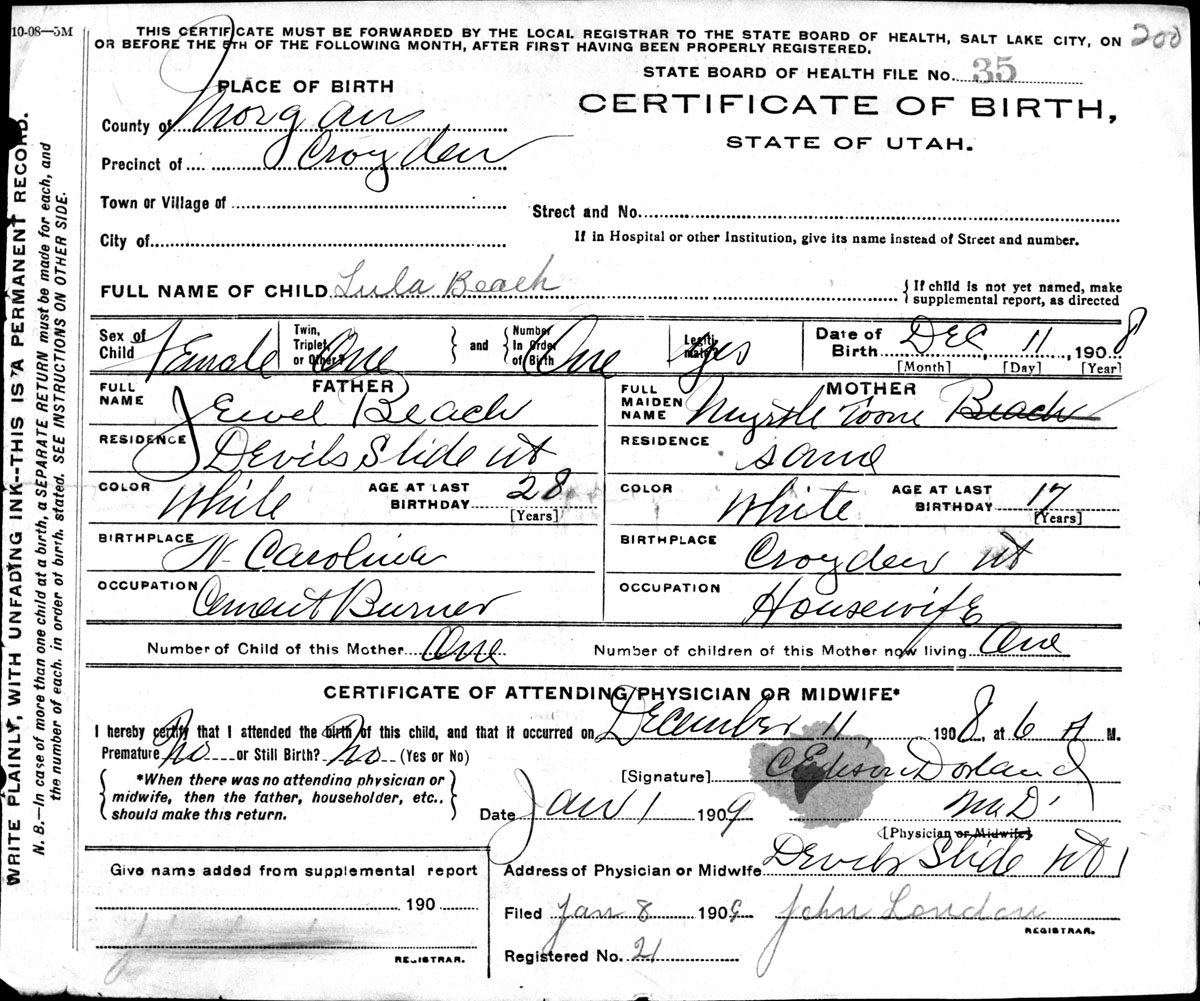 10-08—5M
THIS CERTIFICATE MUST BE FORWARDED BY THE LOCAL REGISTRAR TO THE STATE BOARD OF HEALTH, SALT LAKE CITY, ON 200
OR BEFORE THE 5TH OF THE FOLLOWING MONTH, AFTER FIRST HAVING BEEN PROPERLY REGISTERED.
STATE BOARD OF HEALTH FILE No. 35
PLACE OF BIRTH
CERTIFICATE OF BIRTH,
STATE OF UTAH.
County of Morgan
Precinct of Croyden
Town or Village of
Street and No.
City of
If in Hospital or other Institution, give its name instead of Street and number.
FULL NAME OF CHILD Lula Beach
{If child is not yet named, make
supplemental report, as directed
Sex of Child Female
Twin, Triplet, or Other? One
and
Number In Order of Birth One
Legitimate? yes
Date of Birth DEC 11, 1908
[Month] [Day] [Year]
FATHER
FULL NAME Jewel Beach
MOTHER
FULL MAIDEN NAME Myrtle Toone Beach
RESIDENCE Devils Slide Ut
RESIDENCE same
COLOR White
AGE AT LAST BIRTHDAY 28
[Years]
COLOR White
AGE AT LAST BIRTHDAY 17
[Years]
BIRTHPLACE N. Carolina
BIRTHPLACE Croyden Ut
OCCUPATION Cement Burner
OCCUPATION Housewife
Number of Child of this Mother One
Number of children of this Mother now living One
CERTIFICATE OF ATTENDING PHYSICIAN OR MIDWIFE*
I hereby certify that I attended the birth of this child, and that it occurred on December 11, 1908, at 6 A M.
Premature No or Still Birth? No (Yes or No)
{*When there was no attending physician or
midwife, then the father, householder, etc.,
should make this return.}
[Signature] C Edison Dorland
M.D.
Date Jan 1 1909
[Physician or Midwife]
Address of Physician or Midwife Devils Slide Ut
Give name added from supplemental report
190
REGISTRAR.
Filed Jan 8 1909 John London
REGISTRAR.
Registered No. 21
WRITE PLAINLY, WITH UNFADING INK--THIS IS A PERMANENT RECORD.
N. B.—In case of more than one child at a birth, a SEPARATE RETURN must be made for each, and
the number of each, in order of birth, stated. SEE INSTRUCTIONS ON OTHER SIDE.